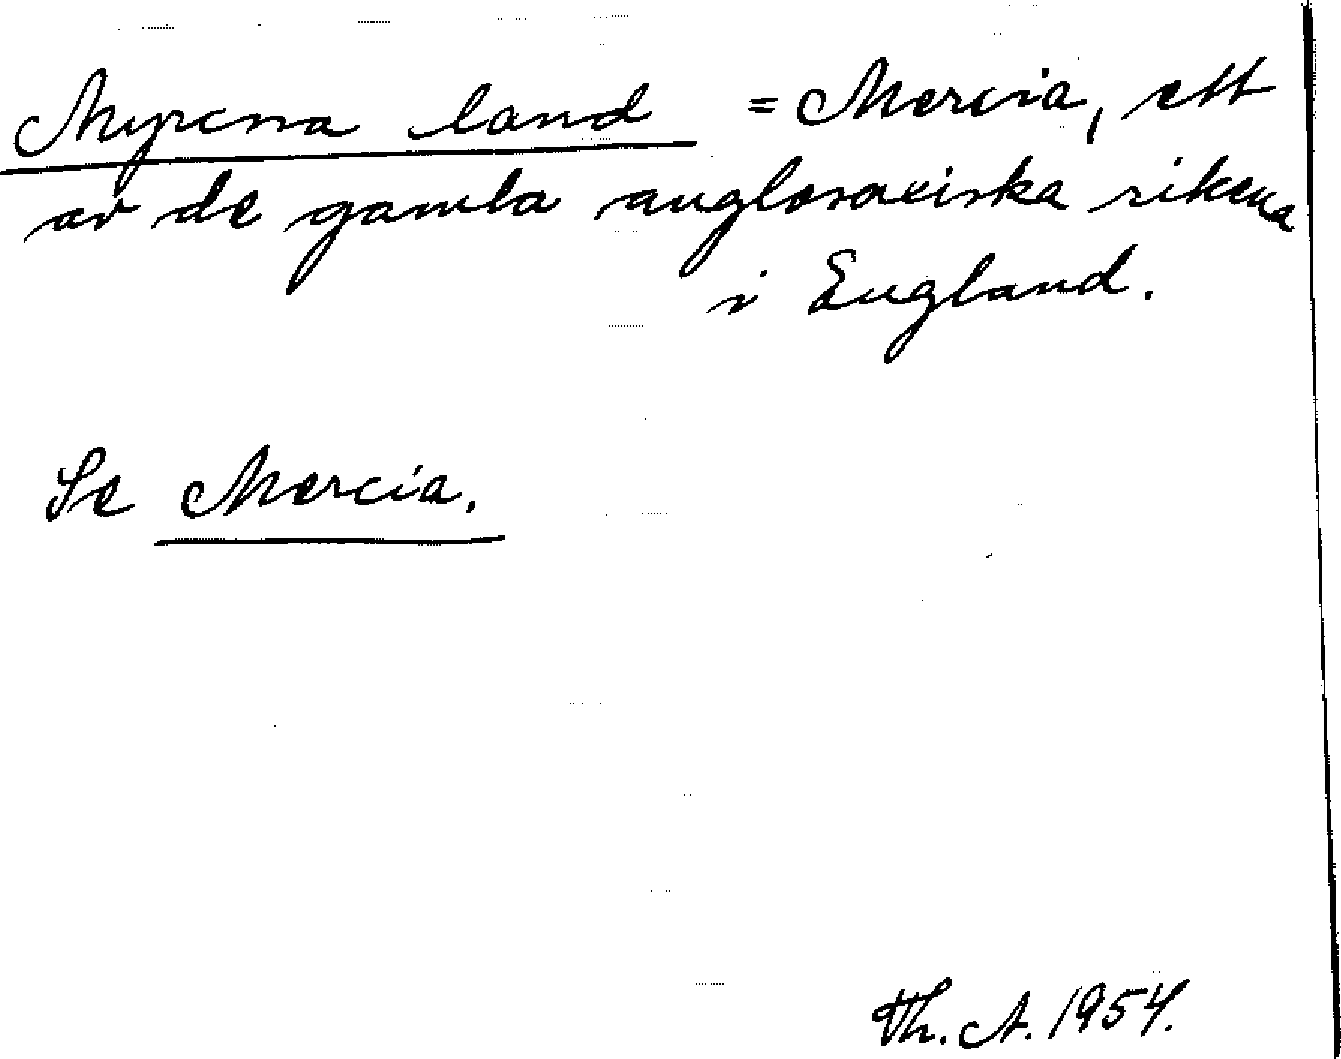 Myrcna land = Mercia, ett
av de gamla anglosaxiska rikena
i England.
Se Mercia.
Th. A. 1954.